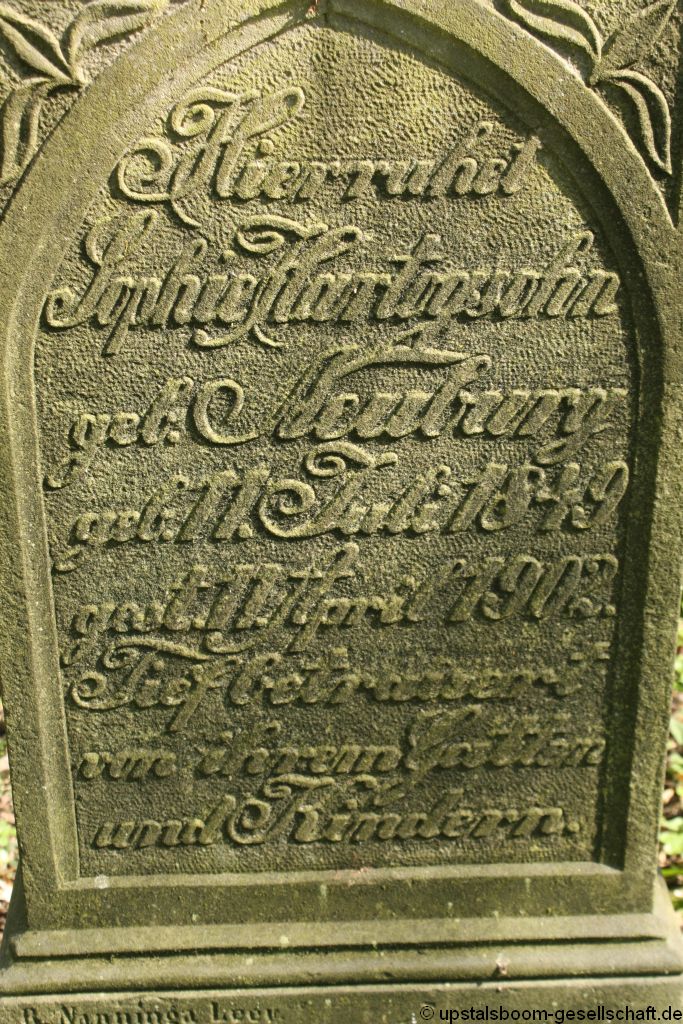 Hier ruhet
Sophie Hartogsohn
geb. Neuburg
geb. 11. Juli 1849
gest. 11. April 1902.
Tief betrauert
von ihrem Gatten
und Kindern.
B. Nanninga Leer.
© upstalsboom-gesellschaft.de